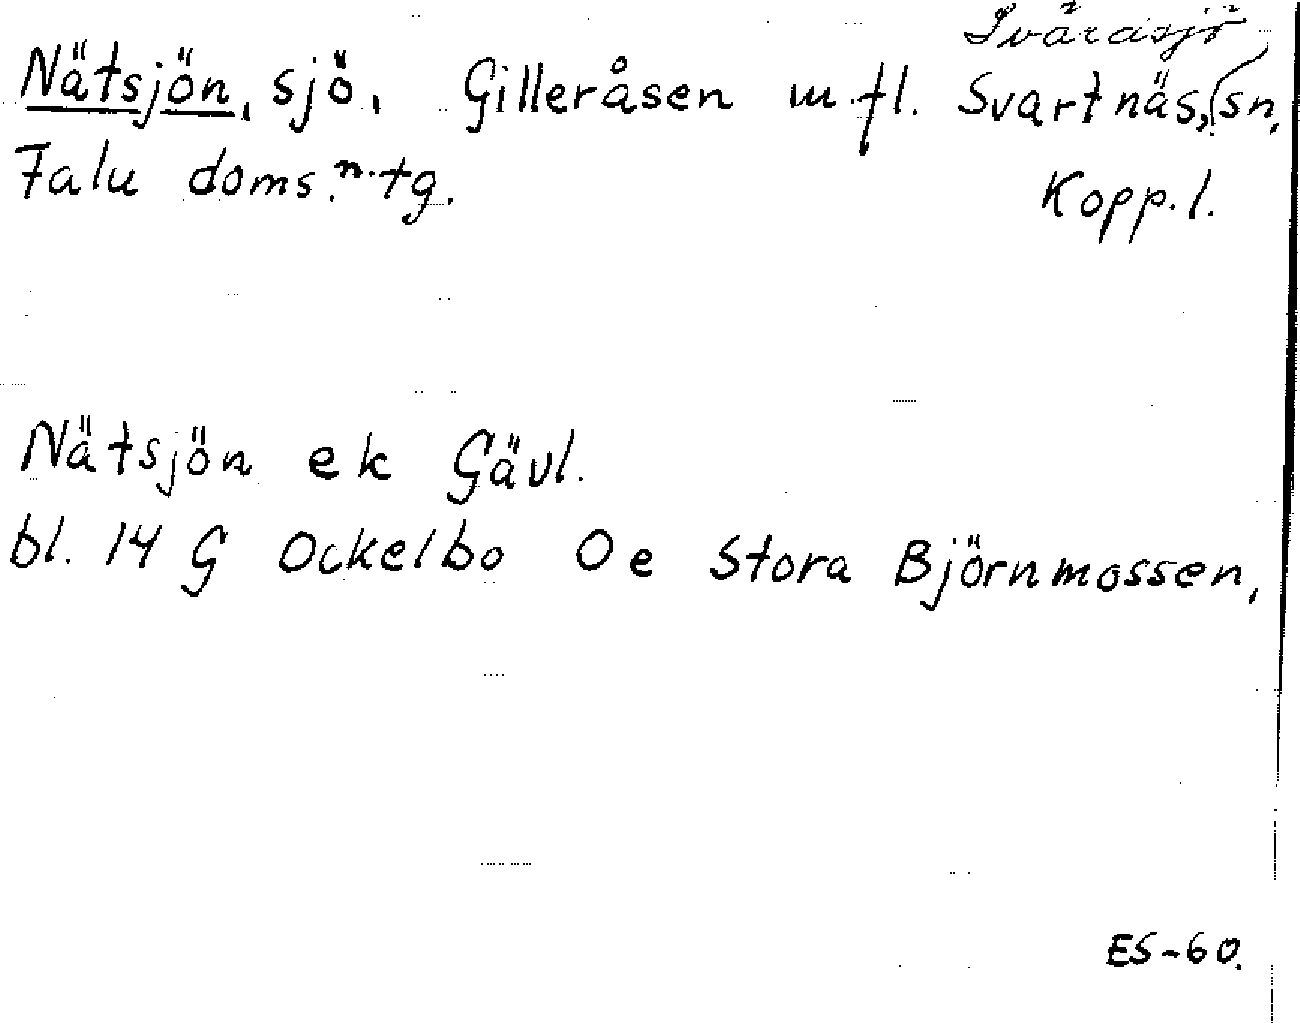 Svärdsjö
Nätsjön, sjö, Gilleråsen m fl. Svartnäs, sn,
Falu doms. n. tg. Kopp. l.
Nätsjön ek Gävl.
bl. 14 G Ockelbo 0e Stora Björnmossen,
ES-60.